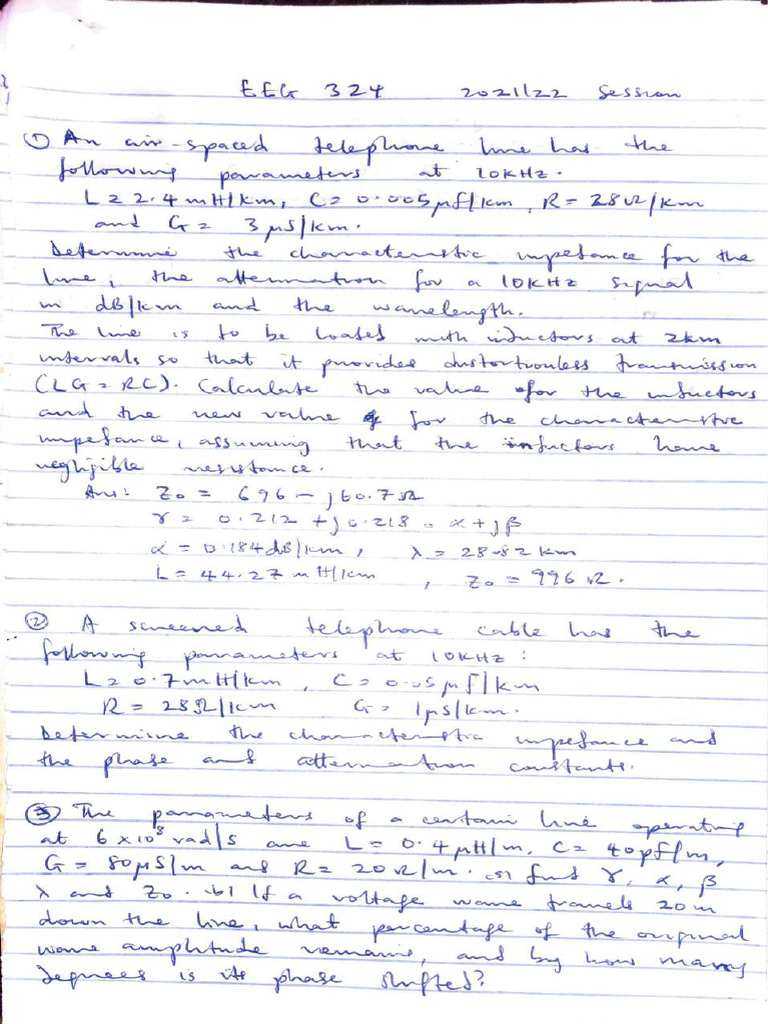 EEG 324 2021/22 Session
① An air-spaced telephone line has the
following parameters at 10KHz.
L = 2.4 mH/km, C = 0.005μf/km, R = 28Ω/km
and G = 3 μS/km.
Determine the characteristic impedance for the
line, the attenuation for a 10KHz signal
in dB/km and the wavelength.
The line is to be loaded with inductors at 2km
intervals so that it provides distortionless transmission
(LG = RC). Calculate the value for the inductors
and the new value for the characteristic
impedance, assuming that the inductors have
negligible resistance.
Ans: Zo = 696 - j60.7Ω
γ = 0.212 + j0.218 = α + jβ
α = 0.184dB/km, λ = 28.82 km
L = 44.27 mH/km, Zo = 996 Ω.
② A screened telephone cable has the
following parameters at 10KHz:
L = 0.7mH/km, C = 0.05μf/km
R = 28Ω/km G = 1μS/km.
Determine the characteristic impedance and
the phase and attenuation constants.
③ The parameters of a certain line operating
at 6 x 10⁸ rad/s are L = 0.4μH/m, C = 40pf/m,
G = 80μS/m and R = 20Ω/m. (a) find γ, α, β
λ and Zo. (b) If a voltage wave travels 20m
down the line, what percentage of the original
wave amplitude remains, and by how many
degrees is its phase shifted?